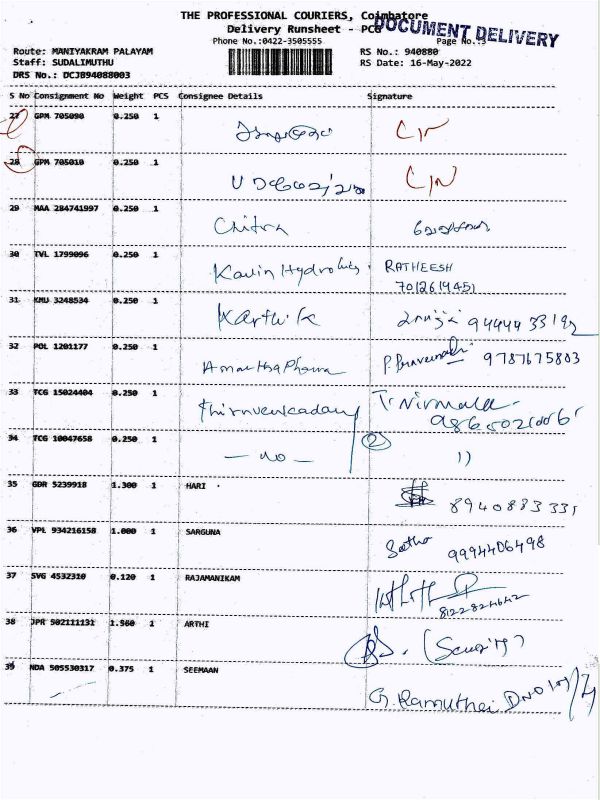 THE PROFESSIONAL COURIERS, Coimbatore
Delivery Runsheet - PCG
DOCUMENT DELIVERY
Phone No.:0422-3505555
Page No.:3
Route: MANIYAKRAM PALAYAM
RS No.: 940880
Staff: SUDALIMUTHU
RS Date: 16-May-2022
DRS No.: DCJB94088003
S No Consignment No Weight PCS Consignee Details Signature
27 GPM 705090 0.250 1
28 GPM 705010 0.250 1
29 MAA 284741997 0.250 1 Chitra
30 TVL 1799096 0.250 1 Kavin Hydro RATHEESH
7012614451
31 KMU 3248534 0.250 1 Karthik 94444 33192
32 POL 1201177 0.250 1 Amartha Pharma 9787675803
33 TCG 15024404 0.250 1 Thiruvenkadam T. Nirmala
34 TCG 10047658 0.250 1 — no — 2 11
35 GDR 5239918 1.300 1 HARI 8940883331
36 VPL 934216158 1.000 1 SARGUNA 9994406498
37 SVG 4532310 0.120 1 RAJAMANIKAM
8122824642
38 JPR 502111131 1.560 1 ARTHI
39 NDA 505530317 0.375 1 SEEMAAN G. Ramuthai